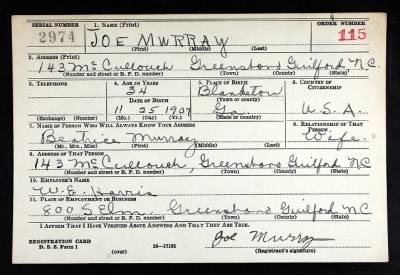 SERIAL NUMBER 1. NAME (Print) ORDER NUMBER
2974 JOE MURRAY 115
(First) (Middle) (Last)
2. ADDRESS (Print)
143 McCullouch Greensboro Guilford N.C.
(Number and street or R. F. D. number) (Town) (County) (State)
3. TELEPHONE 4. AGE IN YEARS 5. PLACE OF BIRTH 6. COUNTRY OF CITIZENSHIP
34 Blankston
DATE OF BIRTH (Town or county)
11 25 1907 Ga. U.S.A.
(Exchange) (No.) (Mo.) (Day) (Yr.) (State or country)
7. NAME OF PERSON WHO WILL ALWAYS KNOW YOUR ADDRESS 8. RELATIONSHIP OF THAT PERSON
Beatrice Murray Wife
(Mr., Mrs., Miss) (First) (Middle) (Last)
9. ADDRESS OF THAT PERSON
143 McCullouch, Greensboro Guilford N.C
(Number and street or R. F. D. number) (Town) (County) (State)
10. EMPLOYER'S NAME
W.E. Harris
11. PLACE OF EMPLOYMENT OR BUSINESS
800 S Elm, Greensboro Guilford N.C
(Number and street or R. F. D. number) (Town) (County) (State)
I AFFIRM THAT I HAVE VERIFIED ABOVE ANSWERS AND THAT THEY ARE TRUE.
REGISTRATION CARD Joe Murray
D. S. S. Form 1 (over) 16-17105 (Registrant's signature)